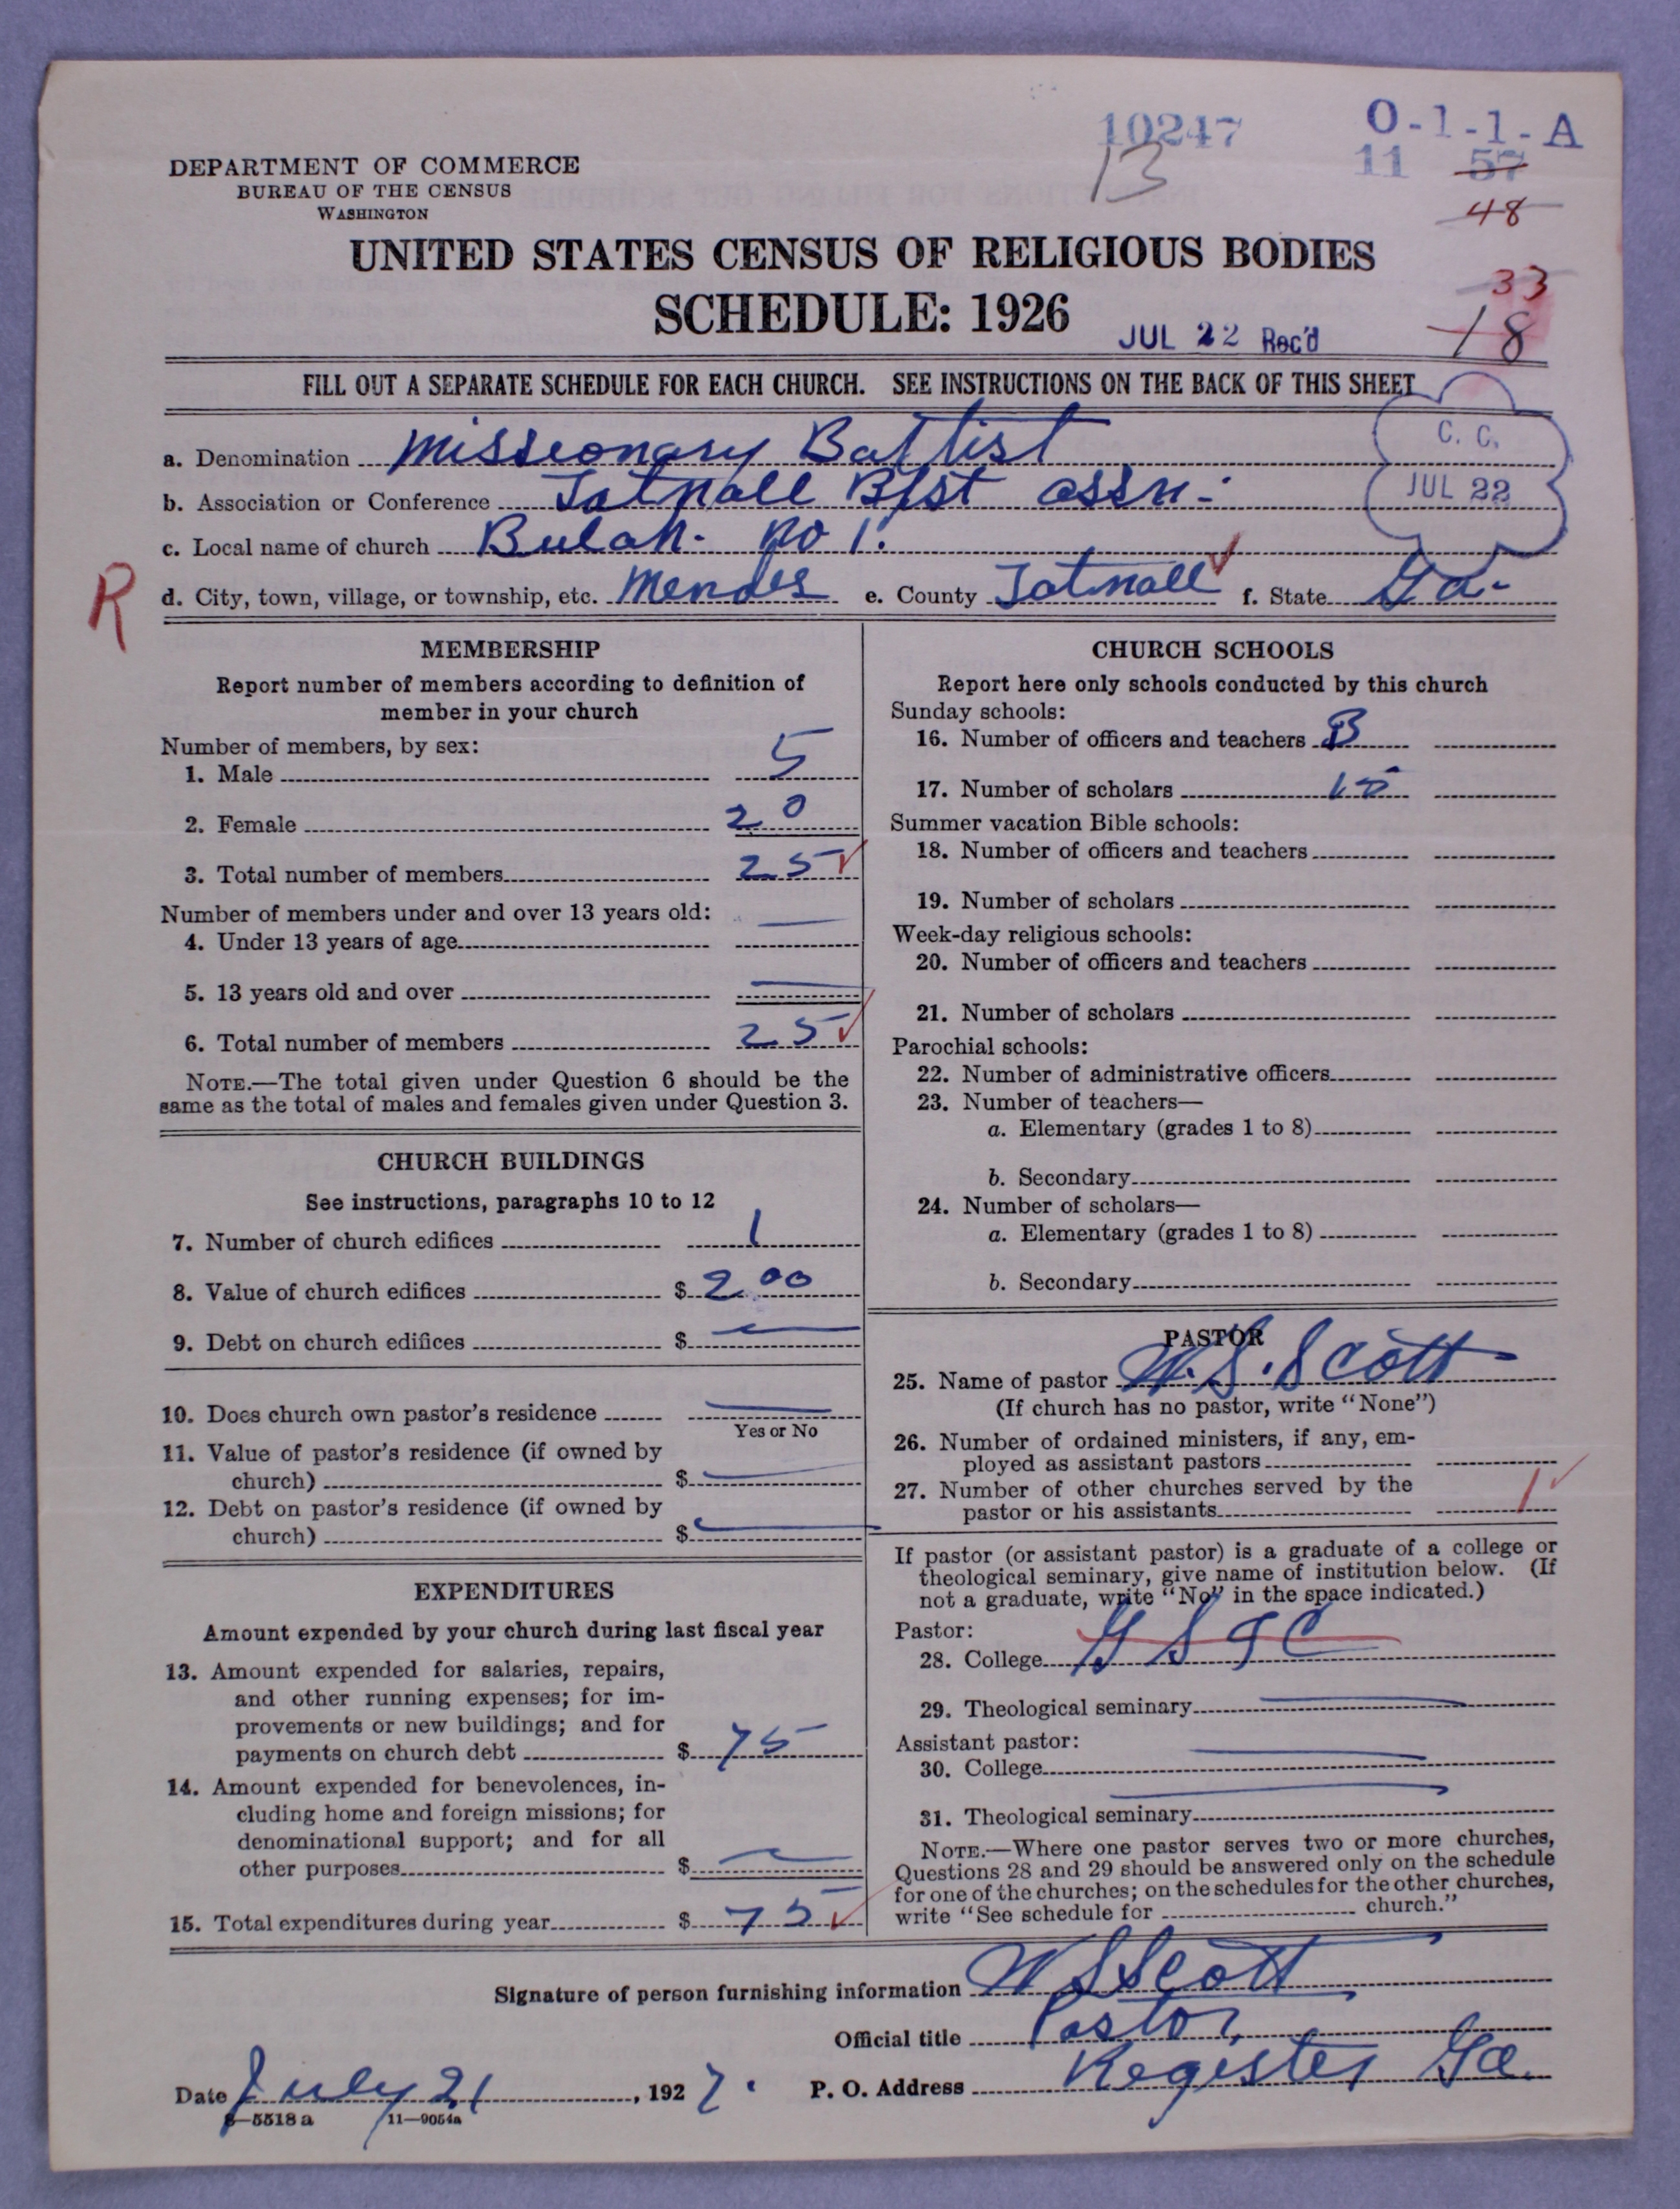 10247
O-1-1-A
13
11 57
48
DEPARTMENT OF COMMERCE
BUREAU OF THE CENSUS
WASHINGTON
UNITED STATES CENSUS OF RELIGIOUS BODIES
33
SCHEDULE: 1926
JUL 22 Rec'd
18
FILL OUT A SEPARATE SCHEDULE FOR EACH CHURCH. SEE INSTRUCTIONS ON THE BACK OF THIS SHEET
C. C.
JUL 22
a. Denomination Missionary Baptist
b. Association or Conference Tatnall Bpst assn-
c. Local name of church Bulah. no 1.
R
d. City, town, village, or township, etc. Mendes e. County Tatnall f. State Ga-
MEMBERSHIP
Report number of members according to definition of
member in your church
Number of members, by sex:
1. Male 5
2. Female 20
3. Total number of members 25
Number of members under and over 13 years old:
4. Under 13 years of age
5. 13 years old and over
6. Total number of members 25
NOTE.—The total given under Question 6 should be the
same as the total of males and females given under Question 3.
CHURCH BUILDINGS
See instructions, paragraphs 10 to 12
7. Number of church edifices 1
8. Value of church edifices $ 200
9. Debt on church edifices $
10. Does church own pastor's residence
Yes or No
11. Value of pastor's residence (if owned by
church) $
12. Debt on pastor's residence (if owned by
church) $
EXPENDITURES
Amount expended by your church during last fiscal year
13. Amount expended for salaries, repairs,
and other running expenses; for im-
provements or new buildings; and for
payments on church debt $ 75
14. Amount expended for benevolences, in-
cluding home and foreign missions; for
denominational support; and for all
other purposes $
15. Total expenditures during year $ 75
CHURCH SCHOOLS
Report here only schools conducted by this church
Sunday schools:
16. Number of officers and teachers
17. Number of scholars 15
Summer vacation Bible schools:
18. Number of officers and teachers
19. Number of scholars
Week-day religious schools:
20. Number of officers and teachers
21. Number of scholars
Parochial schools:
22. Number of administrative officers
23. Number of teachers—
a. Elementary (grades 1 to 8)
b. Secondary
24. Number of scholars—
a. Elementary (grades 1 to 8)
b. Secondary
PASTOR
25. Name of pastor W. S. Scott
(If church has no pastor, write "None")
26. Number of ordained ministers, if any, em-
ployed as assistant pastors
27. Number of other churches served by the
pastor or his assistants 1
If pastor (or assistant pastor) is a graduate of a college or
theological seminary, give name of institution below. (If
not a graduate, write "No" in the space indicated.)
Pastor:
28. College G S I C
29. Theological seminary
Assistant pastor:
30. College
31. Theological seminary
NOTE.—Where one pastor serves two or more churches,
Questions 28 and 29 should be answered only on the schedule
for one of the churches; on the schedules for the other churches,
write "See schedule for church."
Signature of person furnishing information W S Scott
Official title Pastor
Date July 21, 1927. P. O. Address Register Ga.
8—5518 a 11—9054a